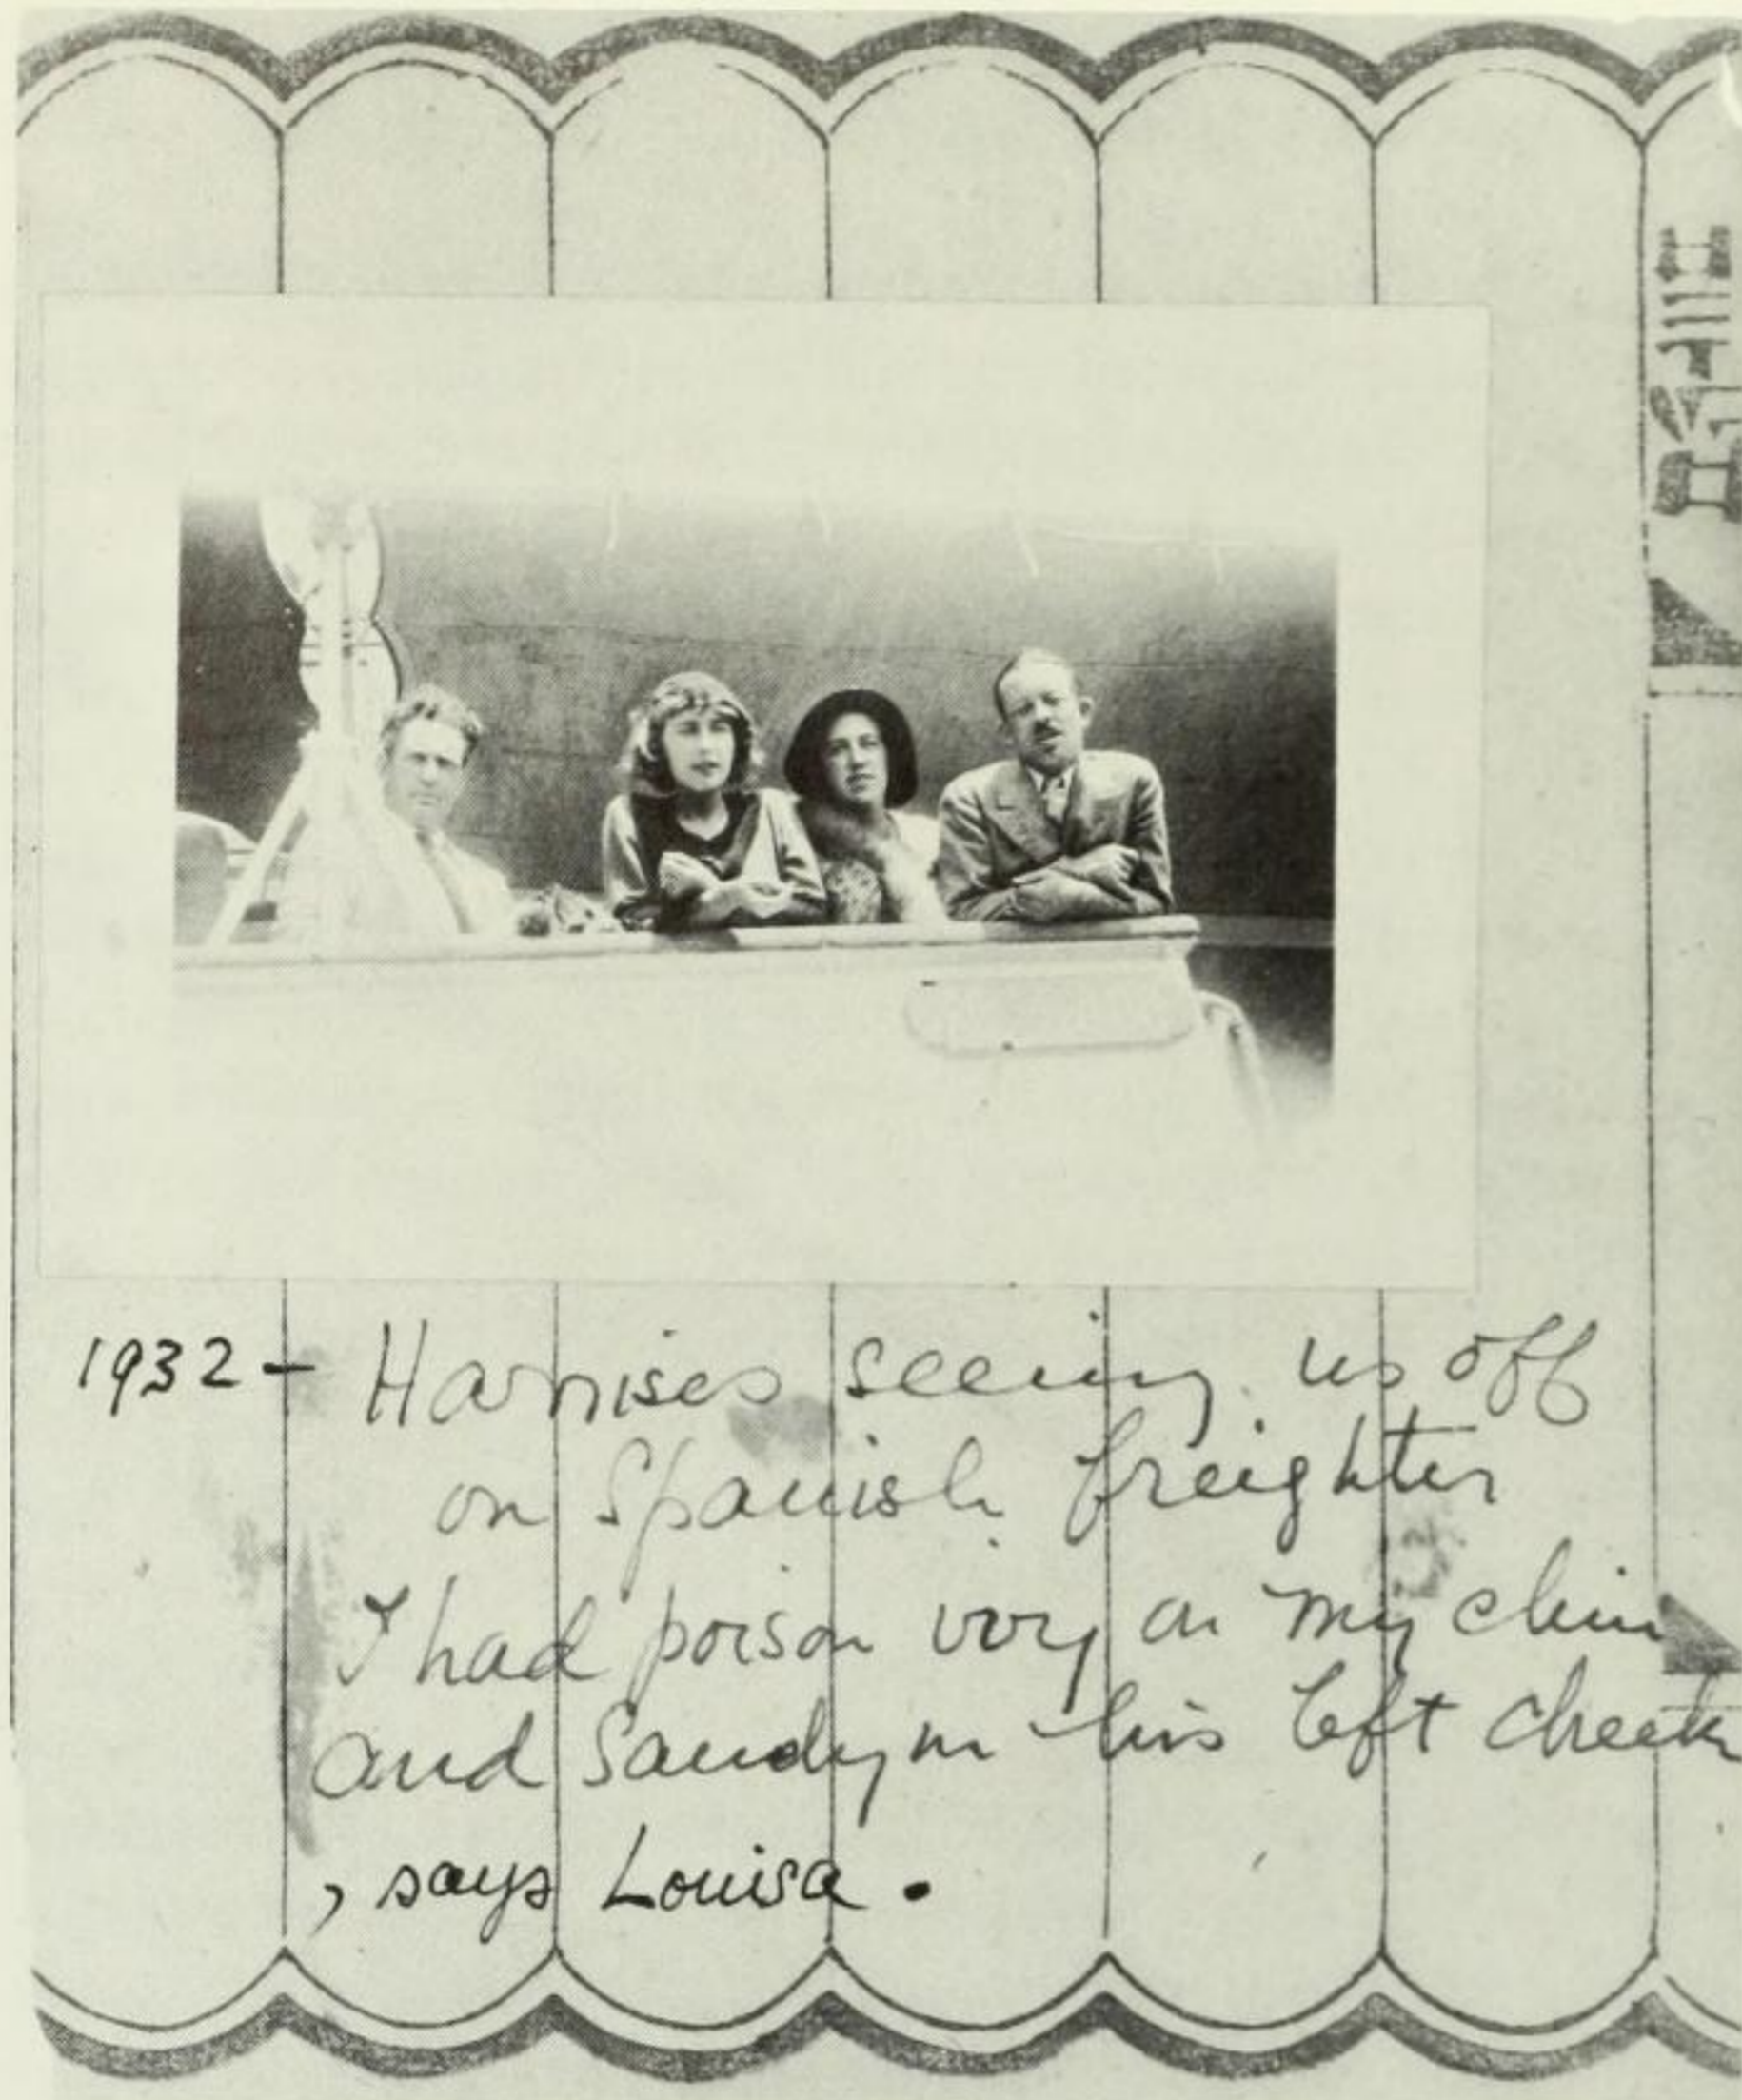 1932 - Harrises seeing us off
on Spanish freighter
I had poison ivy on my chin
and Sandy on his left cheek
, says Louisa.